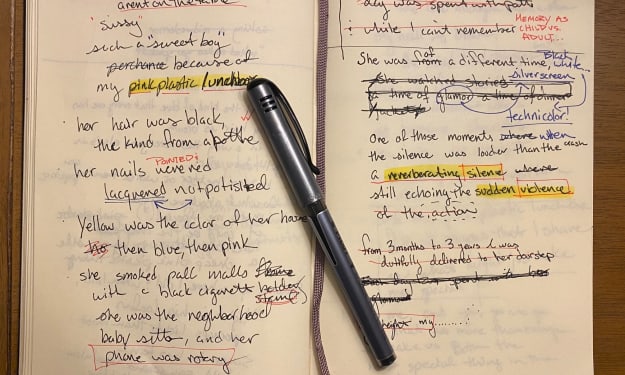 arent on the same
"sissy"
such a "sweet boy"
perchance because of
my pink plastic lunchbox
her hair was black,
the kind from a bottle
POINTED;
her nails were red
lacquered not polished
Yellow was the color of her house
then blue, then pink
she smoked pall malls
with a black cigarett holder
she was the neighborhood
baby sitter, and her
phone was rotary
day was spent with
while I can't remember
MEMORY AS
CHILD VS.
ADULT...
She was from of a different time, black
white
She watched stories
silver screen
a time of glamor a time of
technicolor!
One of those moments where when
the silence was louder than the crash
a reverberating silence where
still echoing the sudden violence
of the action
from 3 months to 3 years I was
dutifully delivered to her doorstep
Each day
glamour
my........